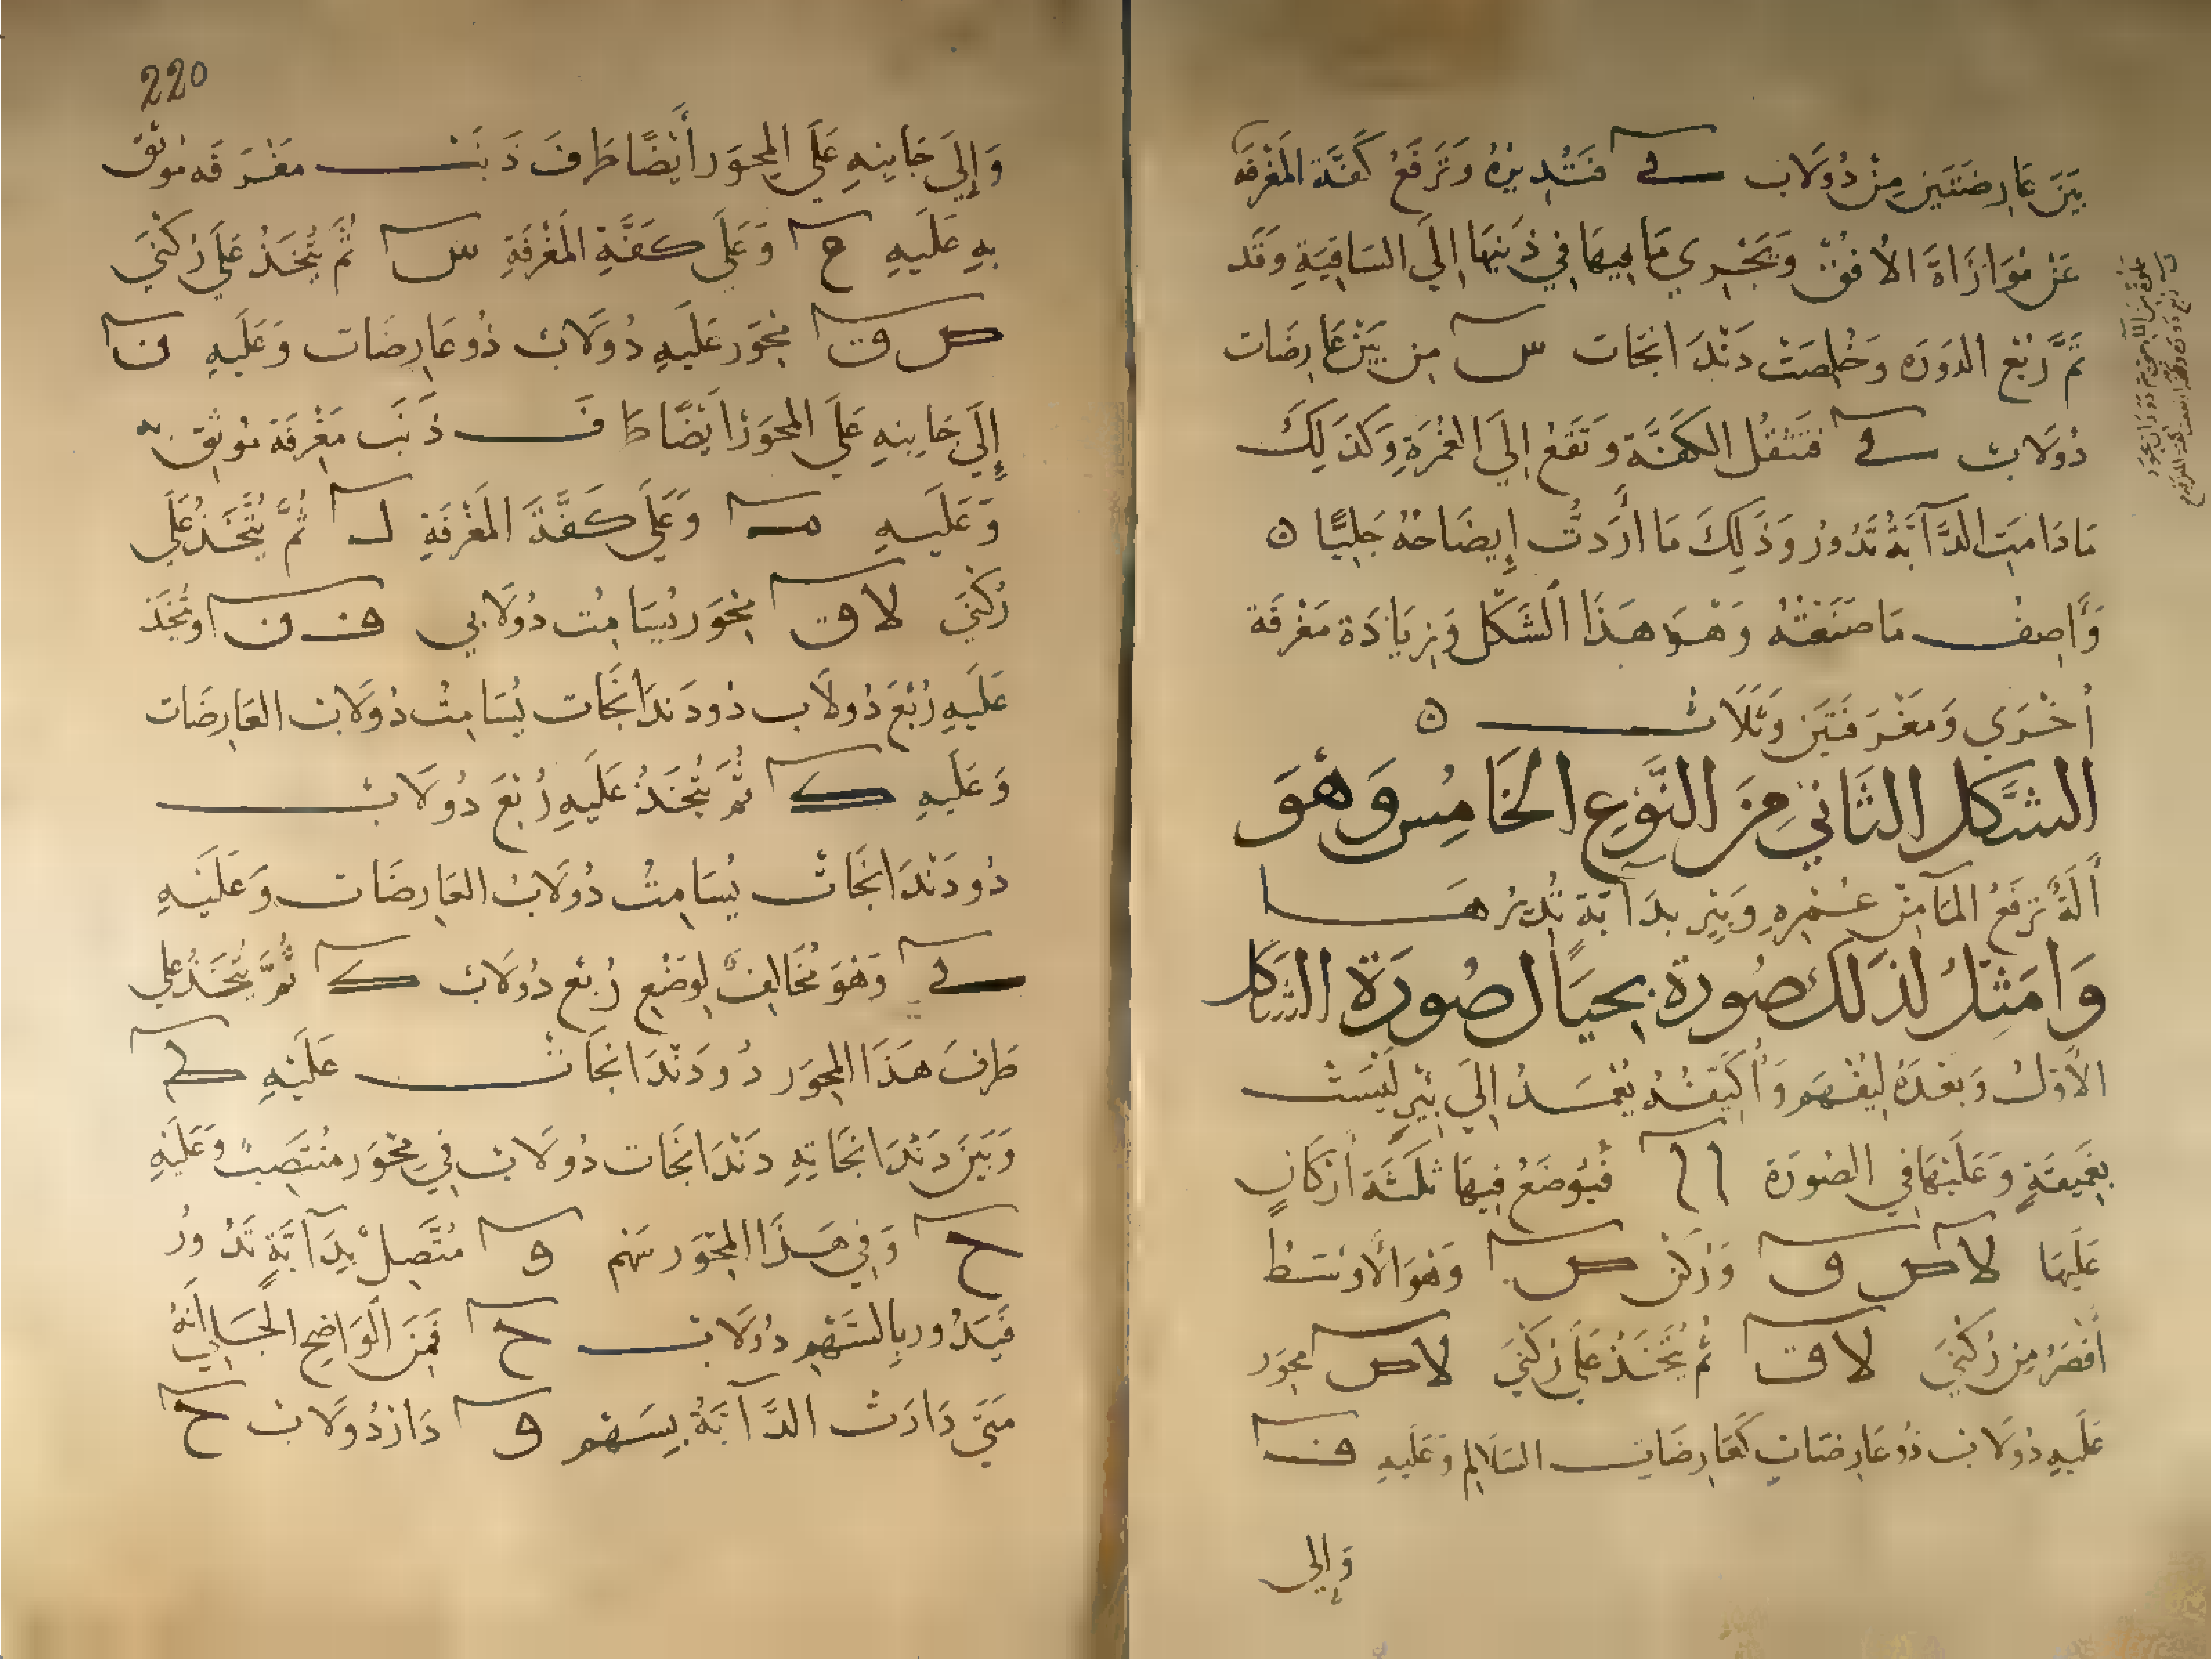 بَيْنَ عَارِضَتَيْنِ مِنْ دُولَابِ ے فَتُدِيرُهُ وَتَرْفَعُ كَفَّةَ المَغْرَفَةِ
عَنْ مُوَازَاةِ الأُفُقِ وَيَجْرِي مَا فِيهَا فِي ذَنَبِهَا إِلَى السَاقِيَةِ وَقَد
تَمَّ رُبْع الدَوَرَه وَخَلَصَتْ دَنْدَانجَات س مِن بَيْنِ عَارِضَات
دُولَابِ ے فَتَثْقُل الكَفَّة وَتَقَعُ إِلَى الغُمْرَةِ وَكَذَلِكَ
مَا دَامَتِ الدَّآبَّةُ تَدُورُ وَذَلِكَ مَا أَرَدْتُ إِيضَاحَهُ جَلِيًّا ه
وَأَصِفُ مَا صَنَعْتُهُ وَهُوَ هَذَا الشَكْل وَبِزِيَادَة مَغْرفَة
أُخْرَى وَمَغْرَفَتَيْنِ وَثَلَاث ه
الشَكل الثَاني مِنَ النَّوْعِ الخَامِس وَهُوَ
أَلَةٌ تَرْفَعُ المَآ مِنْ غُمْرِهِ وَبِيرٍ بِدَآبَّةٍ تُدِيرُهَا
وَامَثِّلُ لذَلكَ صُورة بحيَال صُورَة الشكل
الأَوَّل وَبَعْدَهُ لِيُفْهَمَ وَأُكَيِّفُهُ يُعْمَدُ إِلَى بِيرٍ لَيْسَتْ
بِعَمِيقَةٍ وَعَلَيْهَا فِي الصُورَة ا فَيُوضَعُ فِيهَا ثَلَثَة أَرْكَانٍ
عَلَيْهَا لا ص ق وَرُكْن ص وَهُوَ الأَوْسَطُ
أَقْصَرُ مِن رُكْنَي لا ق ثُمَّ يُتَّخَذُ عَلَى رُكْنَي لا ص مِحوَر
عَلَيهِ دُولَاب ذُو عَارِضَاتٍ كَعَارِضَاتِ السَلَالِم وَعَلَيهِ ف
وَإِلى
220
وَإِلَى جَانِبِهِ عَلَى المِحوَر أَيْضًا طَرَفَ ذَنَب مَغْرَفَه مُوثَق
بِهِ عَلَيهِ ح وَعَلَى كَفَّةِ المَغْرَفَةِ س ثُمَّ يُتَّخَذُ عَلَى رُكْنَي
ص ق مِحوَر عَلَيهِ دُولَاب ذُو عَارِضَات وَعَلَيهِ ن
إِلَى جَانِبِهِ عَلَى المِحوَر أَيْضًا طَرَف ذَنَب مَغْرَفَة مُوثَق به
وَعَلَيهِ م وَعَلَى كَفَّة المَغْرَفَةِ ل ثُمَّ يُتَّخَذُ عَلَى
رُكْنَي لا ق مِحوَر يُسَامِت دُولَابي ف ن وَيُتَّخَذ
عَلَيهِ رُبْعَ دُولَاب ذُو دَندَانجَات يُسَامِتُ دُولَاب العَارِضَات
وَعَلَيهِ ك ثُمَّ يُتَّخَذُ عَلَيهِ رُبْعَ دُولَاب
ذُو دَنْدَانجَات يُسَامِتُ دُولَاب العَارِضَات وَعَلَيْهِ
ے وَهُوَ مُخَالِف لِوَضْعِ رُبْع دُولَاب ك ثُمَّ يُتَّخَذُ عَلَى
طَرَفِ هَذَا المِحوَر دُو دَنْدَانجَات عَلَيْهِ ط
وَبَيْنَ دَنْدَانجَاتِهِ دَنْدَانجَات دُولَاب فِي مِحْوَر مُنْتَصِبٍ وَعَلَيْهِ
ح وَفِي هَذَا المِحْوَر سَهْم و مُتَّصِلٌ بِدَآبَّةٍ تَدُورُ
فَيَدُور بِالسَّهْمِ دُولَاب ح فَمِنَ الوَاضِحِ الجَلِي أَنَّهُ
مَتَى دَارَت الدَّآبَّةُ بِسَهْم و دَارَ دُولَاب ح